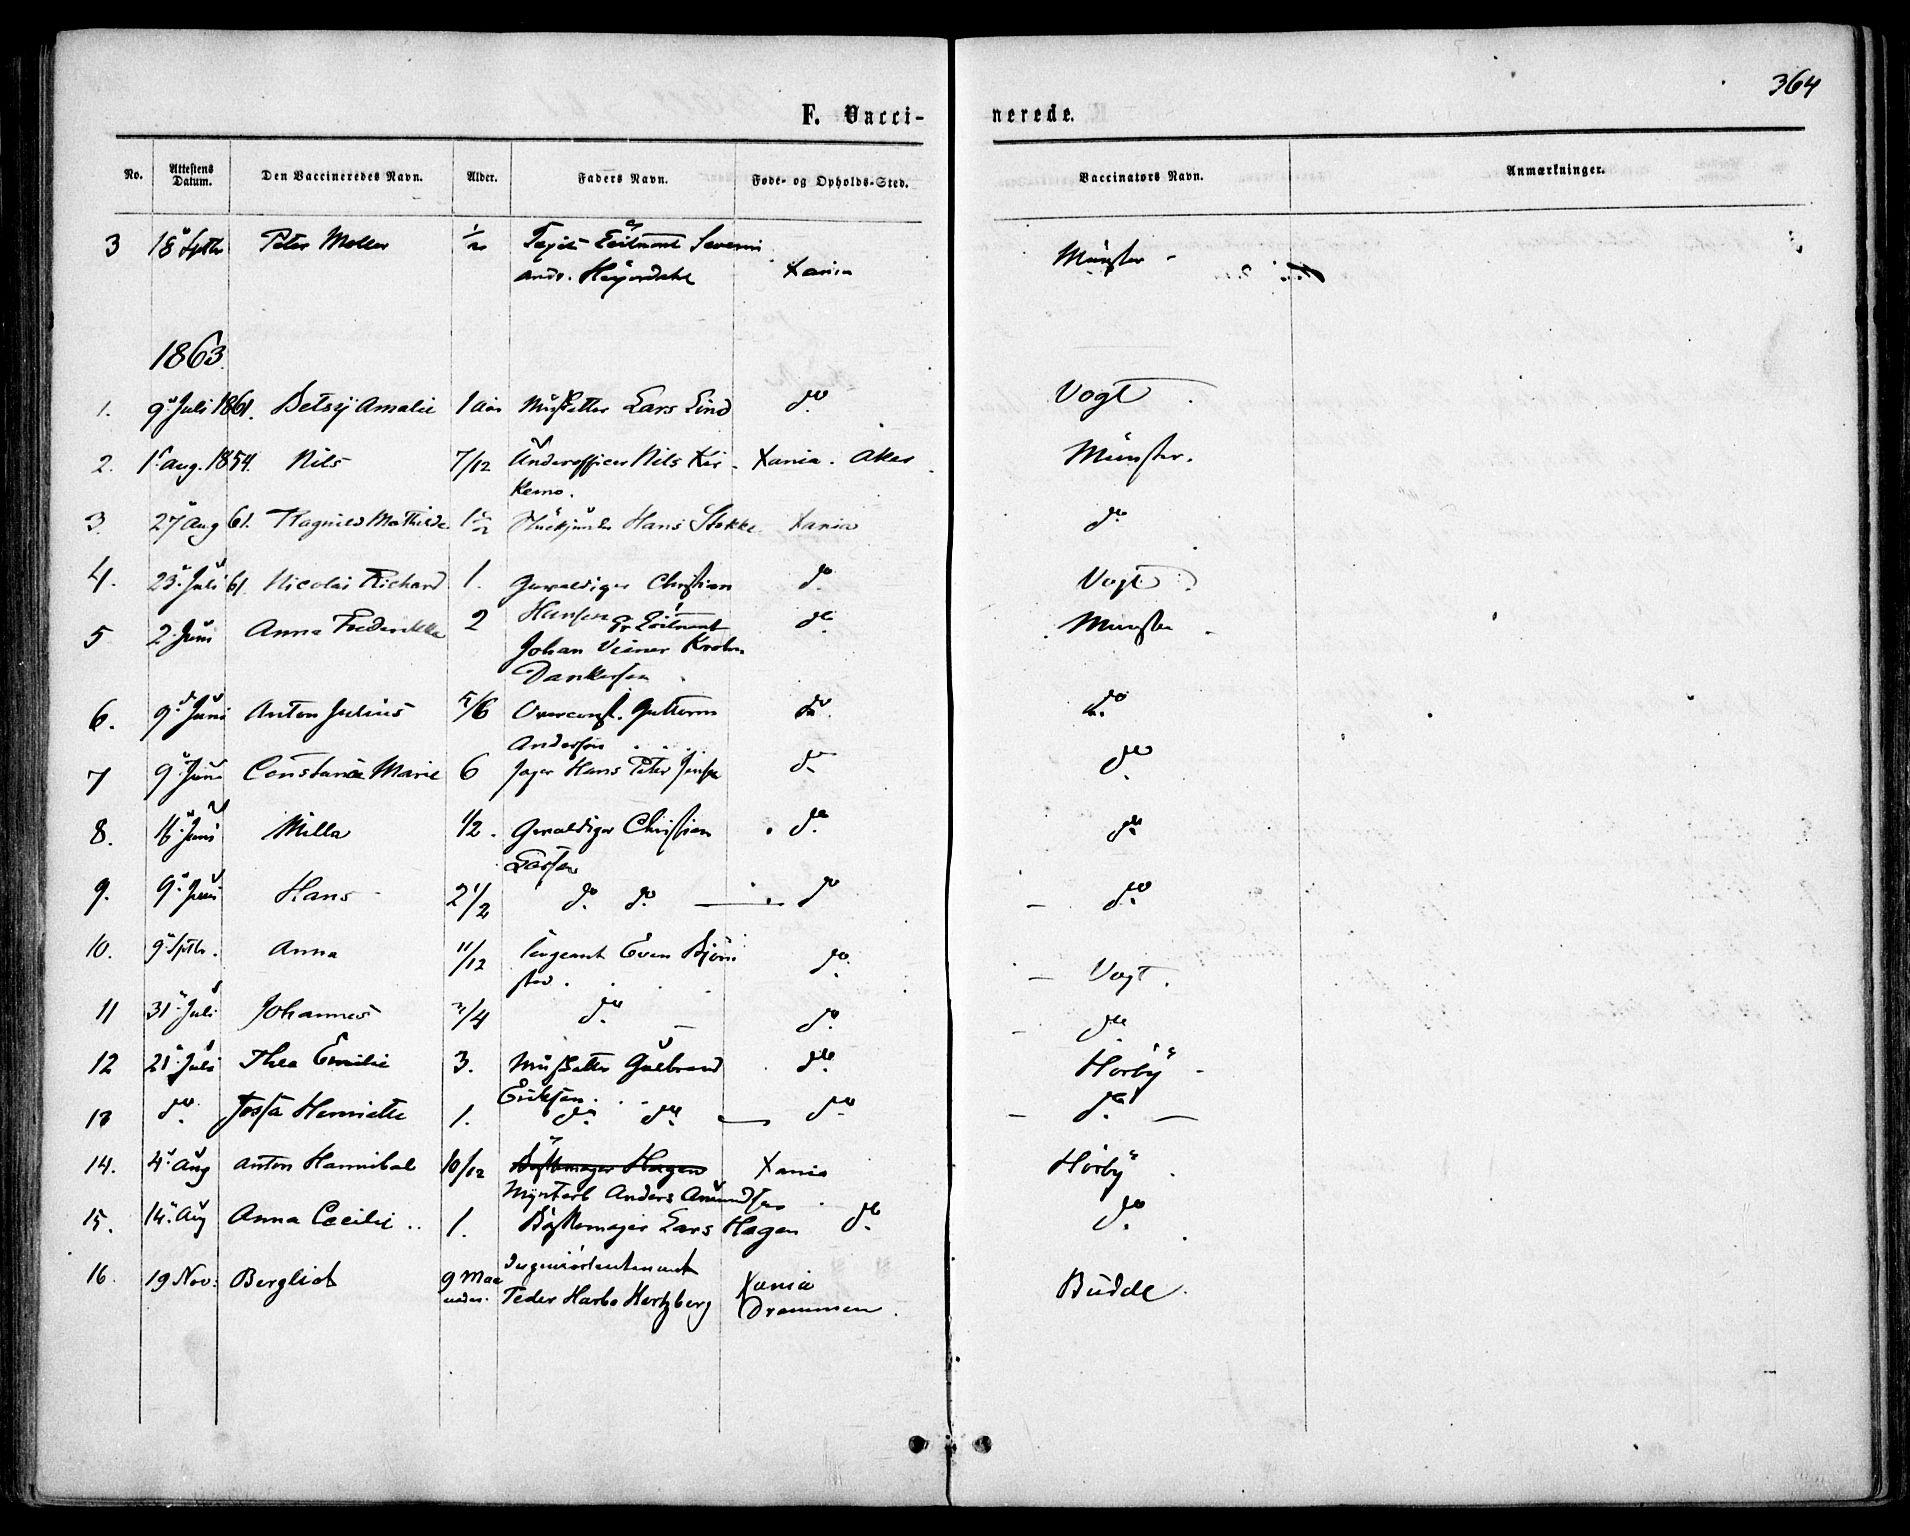 364
F. Vacci- nerede.
No. Attestens Datum. Den Vaccineredes Navn. Alder. Faders Navn. Føde- og Opholds-Sted. Vaccinators Navn. Anmærkninger.
3 18 Septbr Peter Møller Severin Xania Münster
1863.
1. 9 Juli 1861. Betsy Amalie 1 Aar Musketter Lars Lind do Vogt
2. 1 Aug. 1854. Nils 7/12 Underofficer Nils Kir- Xania. Aker Münster.
kemo.
3. 27 Aug 61. Ragnild Mathilde Hans Stokke Xania do
4. 23 Juli 61. Nicolai Richard 1. Gevaldiger Christian do Vogt
Hansen
5 2 Juni Anna Frederikke 2 Pr Löitnant do Münster
Johan Veiner Krohn
Dankertsen
6. 9 Juni Anton Julius 5/6 Overconst. Guttorm do. do
Andersen
7 9 Juni Constance Marie 6 Jæger Hans Peter Jensen do do
8. 16 Juni Milla 1/2. Gevaldiger Christian do do
Larsen
9. 9 Juni Hans 2 1/2 do do do do
10. 9 Septbr. Anna 11/12 Sergeant Even Björn do Vogt.
stad.
11 31 Juli Johannes 3/4 do do do
12 21 Juli Thea Emilie 3. Musketter Gulbrand do Hörbÿ
Eriksen.
13 do Josfa Henriette 1. do do do do
14. 4 Aug Anton Hannibal 10/12 Bøssemager Hagen Xania Hörbÿ
Mynterb Anders Amundsen
15. 14 Aug Anna Cecilie 1. Bøssemager Lars Hagen do do
16. 19 Nov: Berglict 9 Maa Ingeniörlieutenant Xania Budde.
neder. Peder Harbo Hertzberg Drammen.